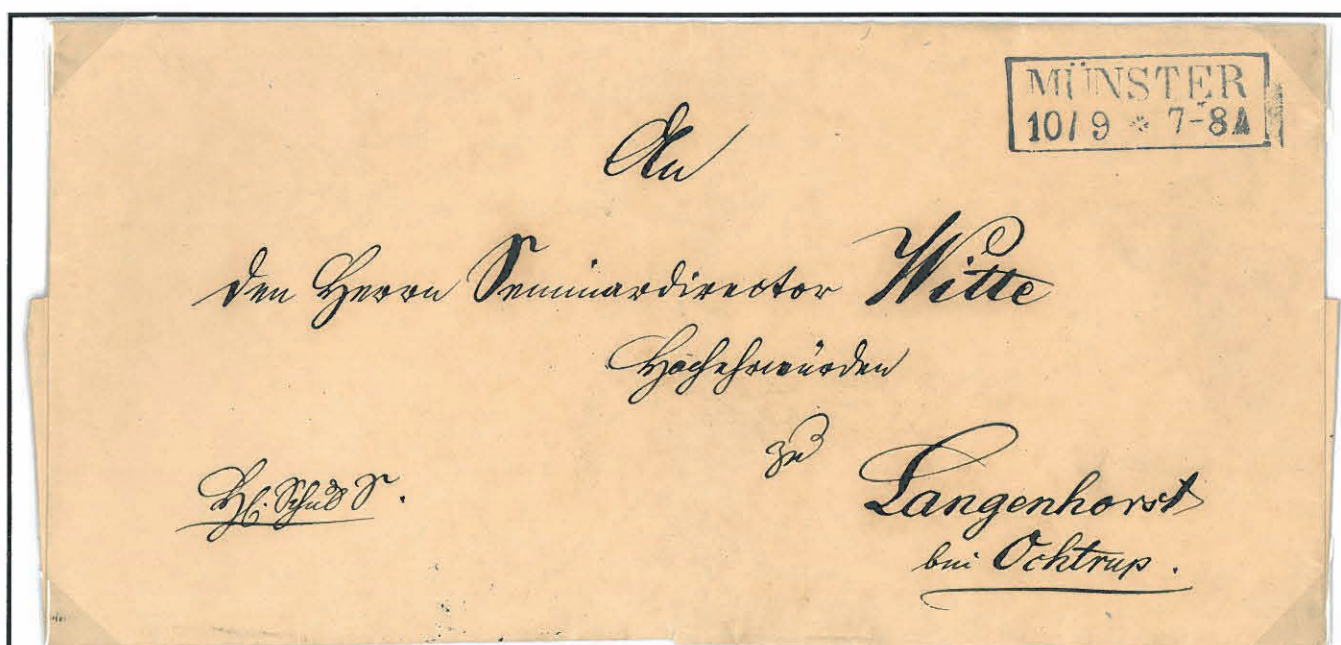 MÜNSTER
10/9 * 7-8 A
An
den Herrn Seminardirector Witte
Hochehrwürden
zu
Langenhorst
bei Ochtrup.